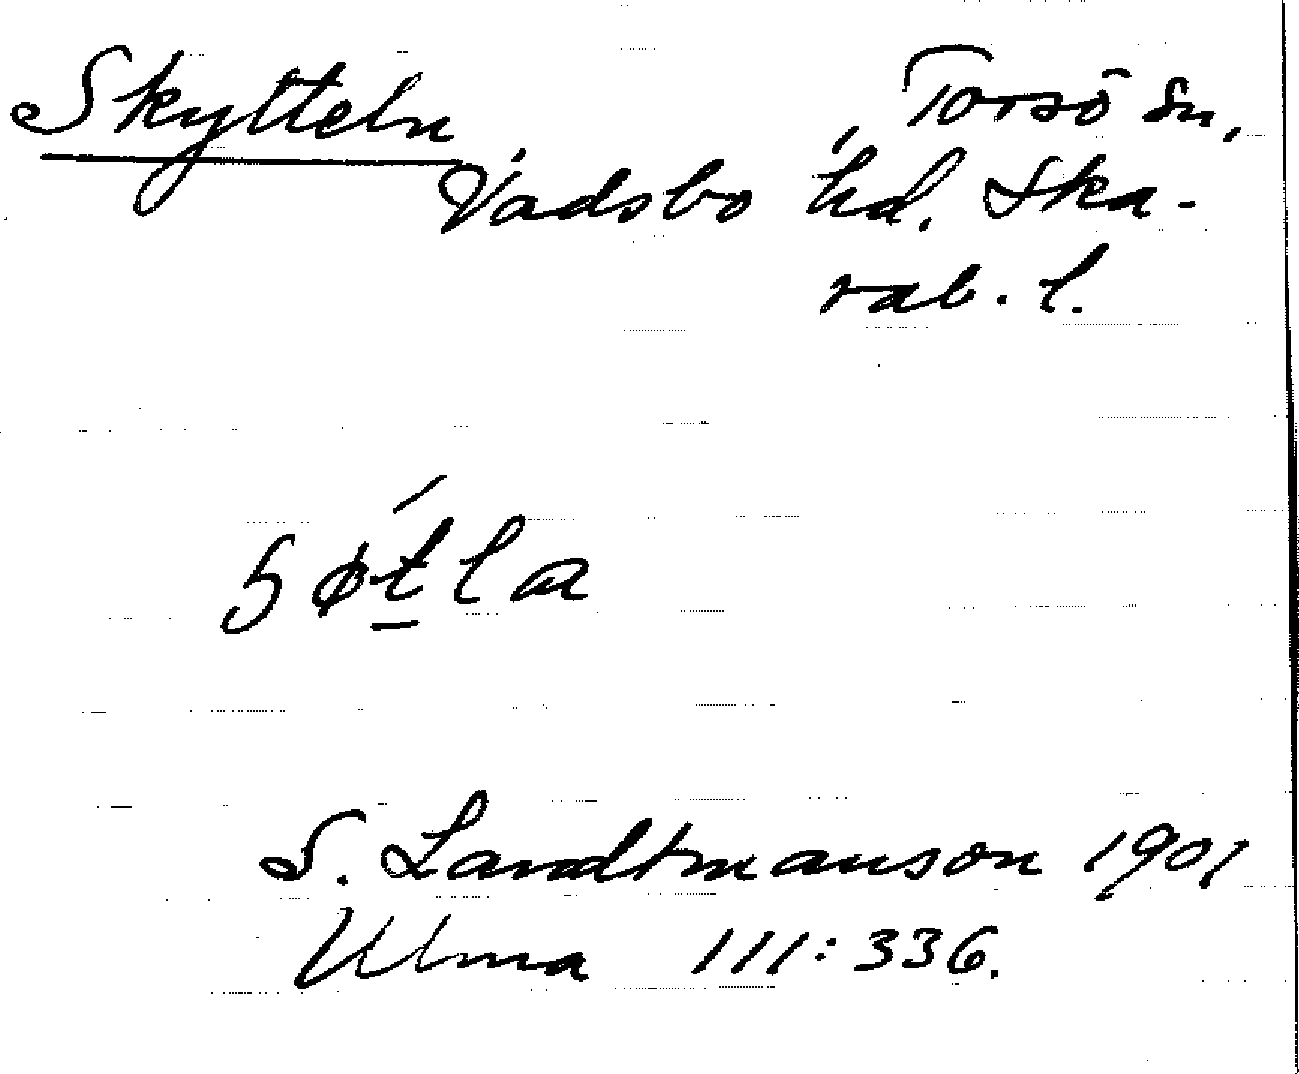 Skytteln Torsö sn,
Vadsbo hd. Ska-
rab. l.
ʃøt̲la
S. Landtmanson 1901
Ulma 111:336.